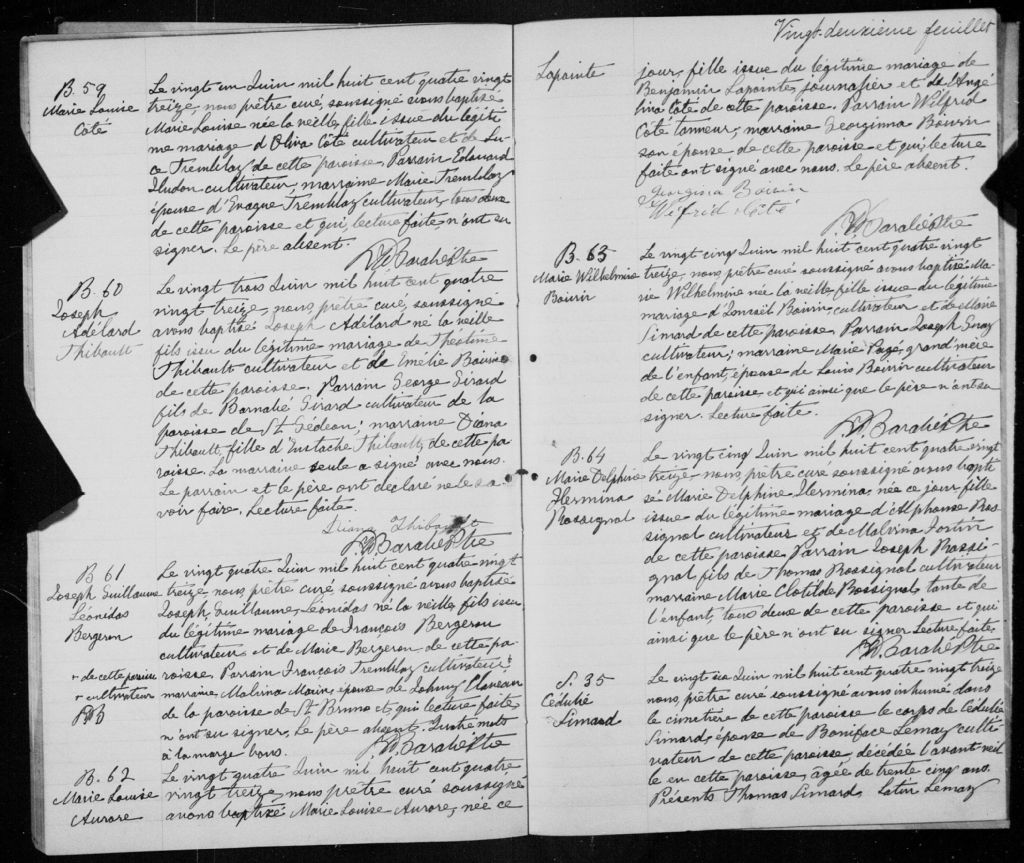 B. 59
Marie Louise
Côté
Le vingt un Juin mil huit cent quatre vingt
treize, nous prêtre curé, soussigné avons baptisé
Marie Louise née la veille, fille issue du légiti
me mariage d'Oliva Côté cultivateur et de Lu-
ce Tremblay de cette paroisse. Parrain Edouard
Hudon cultivateur, marraine Marie Tremblay
épouse d'Evague Tremblay cultivateur, tous deux
de cette paroisse et qui, lecture faite, n'ont su
signer. Le père absent.
B. 60
Joseph
Adélard
Thibault
Le vingt trois Juin mil huit cent quatre
vingt-treize, nous, prêtre curé, soussigné
avons baptisé Joseph Adélard né la veille
fils issu du légitime mariage de Théotime
Thibault cultivateur et de Emélie Boivin
de cette paroisse. Parrain George Girard
fils de Barnabé Girard cultivateur de la
paroisse de St Gédeon; marraine Diana
Thibault, fille d'Eustache Thibault, de cette pa
roisse. La marraine seule a signé avec nous.
Le parrain et le père ont déclaré ne le sa-
voir faire. Lecture faite.
Diana Thibault
B 61
Joseph Guillaume
Léonidas
Bergeron
Le vingt quatre Juin mil huit cent quatre vingt
treize, nous, prêtre curé, soussigné avons baptisé
Joseph, Guillaume, Léonidas né la veille, fils issu
du légitime mariage de François Bergeron
cultivateur et de Marie Bergeron de cette pa-
roisse. Parrain François Tremblay cultivateur
marraine Malvina Morin, épouse de Johnny Claveau
de la paroisse de St Bruno et qui lecture faite,
n'ont su signer. Le père absent. Quatre mots
à la marge bons.
+ de cette paroisse
+ cultivateur
B. 62
Marie Louise
Aurore
Le vingt quatre Juin mil huit cent quatre
vingt treize, nous prêtre curé soussigné
avons baptisé Marie Louise Aurore, née ce
Vingt-deuxième feuillet
Lapointe
jour, fille issue du légitime mariage de
Benjamin Lapointe, journalier et de l'Angé
lina Coté de cette paroisse. Parrain Wilfrid
Côté tanneur, marraine Georginna Boivin
son épouse de cette paroisse et qui, lecture
faite ont signé avec nous. Le père absent.
Georgina Boivin
Wilfrid Côté
B. 63
Marie Wilhelmine
Boivin
Le vingt cinq Juin mil huit cent quatre vingt
treize, nous prêtre curé soussigné avons baptisé Ma-
rie Wilhelmine née la veille, fille issue du légitime
mariage d'Ismaël Boivin, cultivateur et de Marie
Simard de cette paroisse. Parrain Joseph
cultivateur; marraine Marie Pagé, grand'mère
de l'enfant, épouse de Louis Boivin cultivateur
de cette paroisse et qui ainsi que le père n'ont su
signer. Lecture faite.
B. 64
Marie Delphine
Hermina
Rossignol
Le vingt cinq Juin mil huit cent quatre vingt
treize, nous, prêtre curé soussigné avons bapti
sé Marie Delphine Hermina, née ce jour, fille
issue du légitime mariage d'Alphonse Ros
signol cultivateur et de Malvina Fortin
de cette paroisse. Parrain Joseph Rossi-
gnol fils de Thomas Rossignol cultivateur
marraine Marie Clotilde Rossignol, tante de
l'enfant, tous deux de cette paroisse et qui
ainsi que le père n'ont su signer. Lecture faite.
S. 35
Cédulie
Simard
Le vingt six Juin mil huit cent quatre vingt treize
nous, prêtre curé soussigné avons inhumé dans
le cimetière de cette paroisse le corps de Cédulie
Simard, épouse de Boniface Lemay culti-
vateur de cette paroisse décédée l'avant veil
le en cette paroisse, âgée de trente cinq ans.
Présents Thomas Simard, Lemay